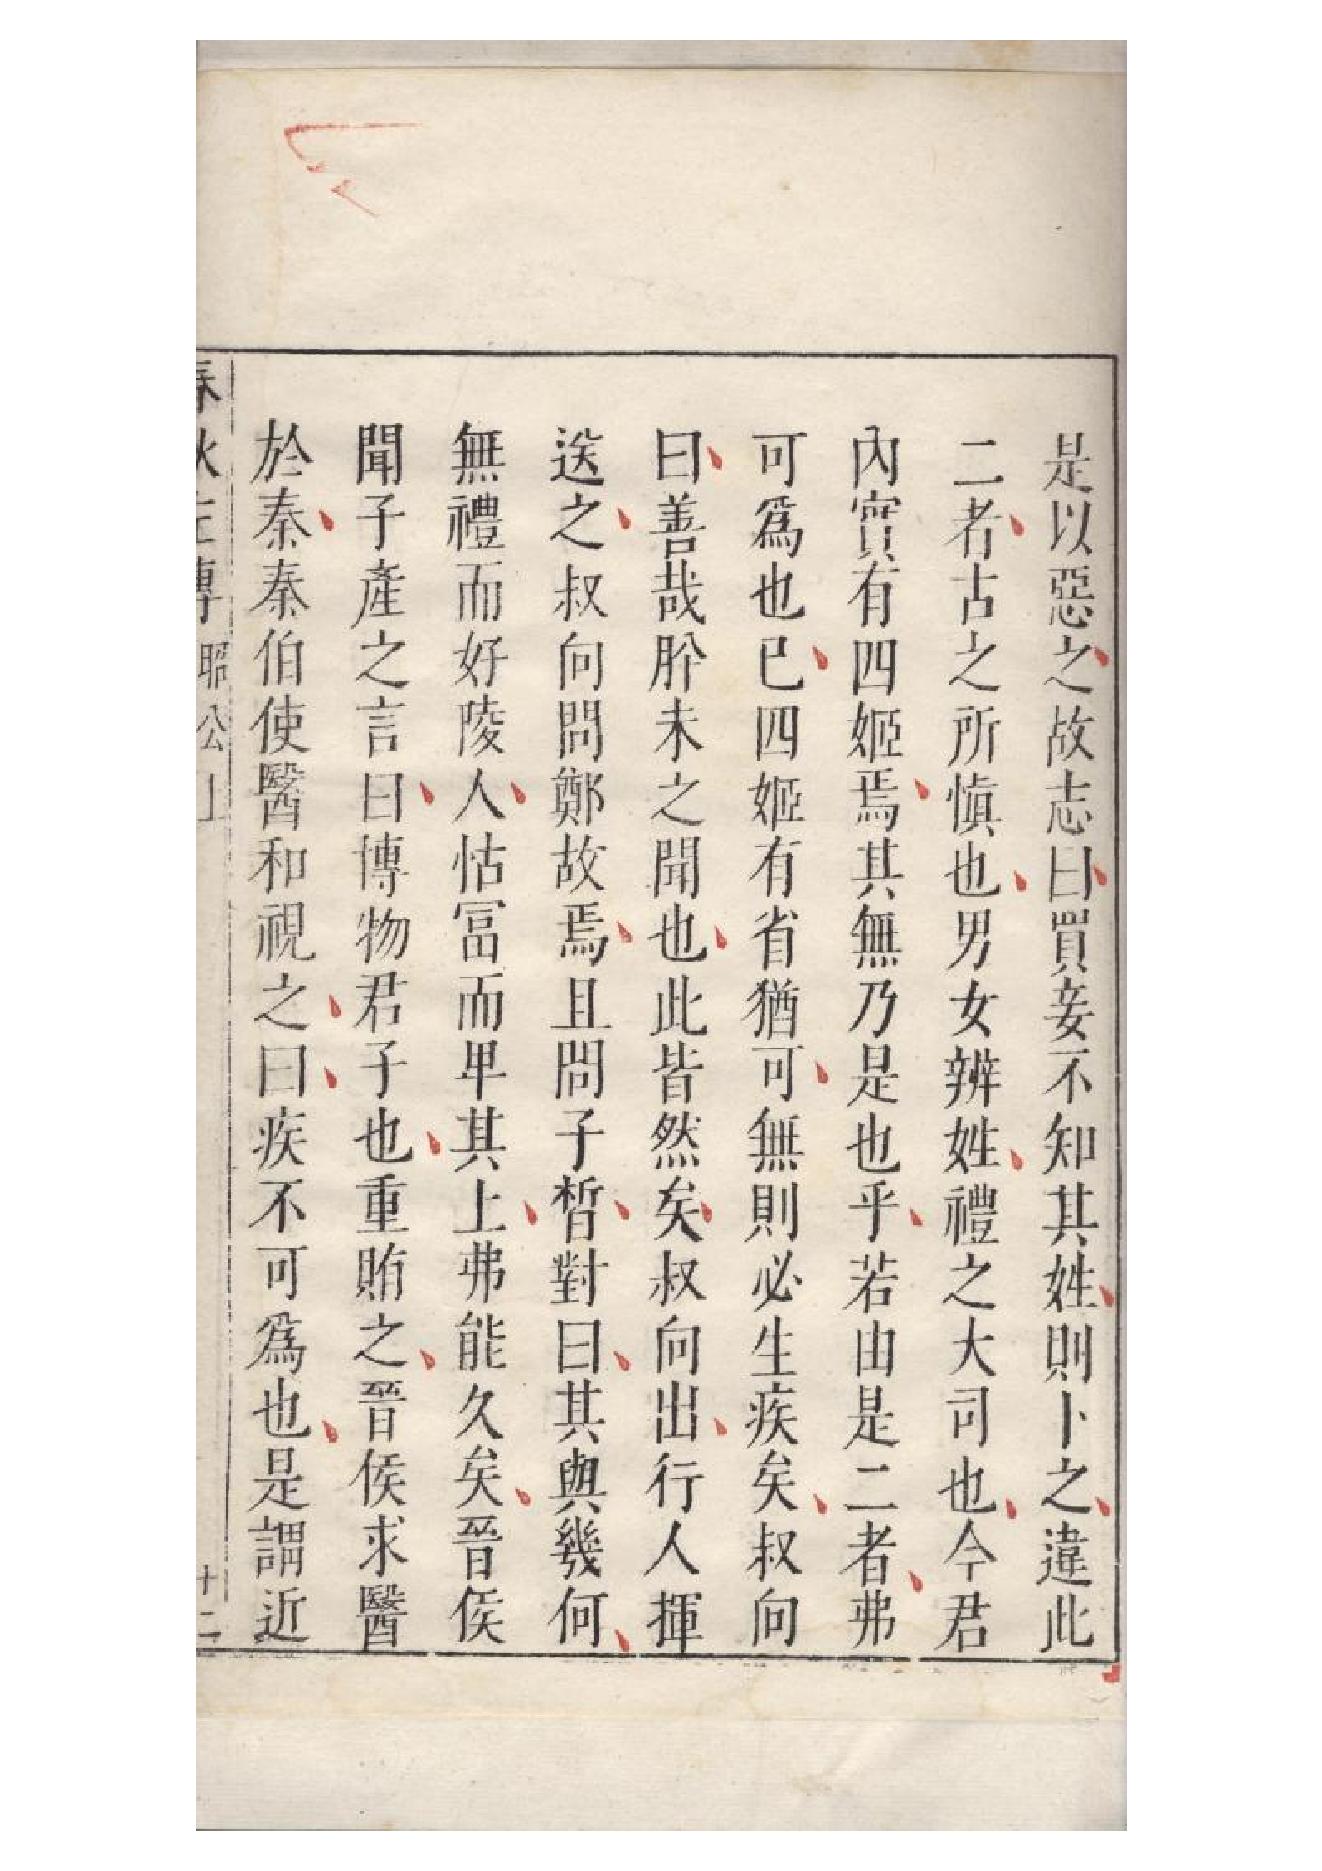 是以惡之故志曰買妾不知其姓則卜之違此
二者古之所慎也男女辨姓禮之大司也今君
內實有四姬焉其無乃是也乎若由是二者弗
可爲也已四姬有省猶可無則必生疾矣叔向
曰善哉肸未之聞也此皆然矣叔向出行人揮
送之叔向問鄭故焉且問子晳對曰其與幾何
無禮而好陵人怙冨而卑其上弗能久矣晉侯
聞子產之言曰博物君子也重賄之晉侯求醫
於秦秦伯使醫和視之曰疾不可爲也是謂近
春秋左傳 昭公上 十二